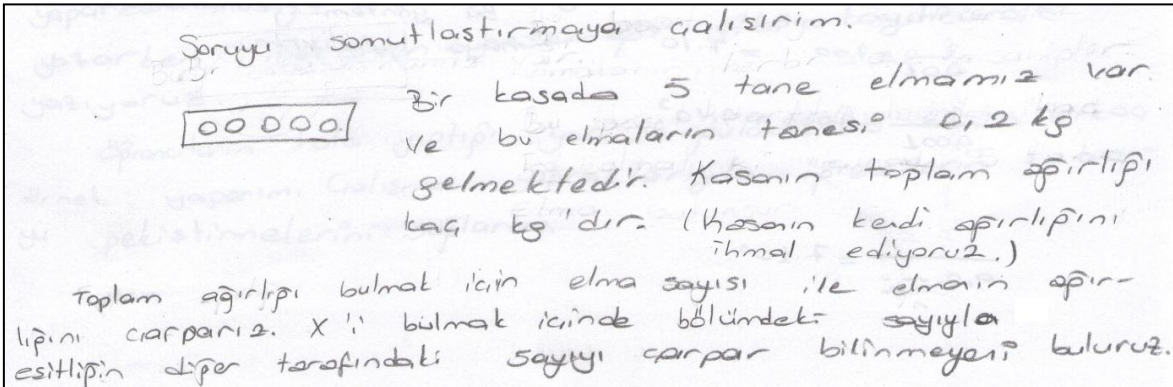 Soruyu somutlaştırmaya çalışırım.
Bir kasada 5 tane elmamız var
ve bu elmaların tanesi 0,2 kg
gelmektedir. Kasanın toplam ağırlığı
kaç kg'dır. (Kasanın kendi ağırlığını
ihmal ediyoruz.)
Toplam ağırlığı bulmak için elma sayısı ile elmaın ağır-
lığını çarparız. X'i bulmak içinde bölümdeki sayıyla
eşitliğin diğer tarafındaki sayıyı çarpar bilinmeyeni buluruz.